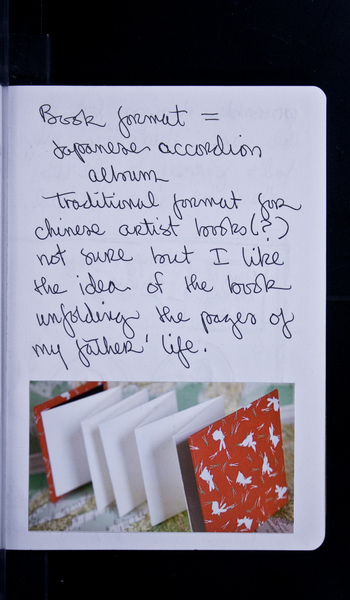 Book format =
Japanese accordion
album
Traditional format for
chinese artist books(?)
not sure but I like
the idea of the book
unfolding the pages of
my father' life.